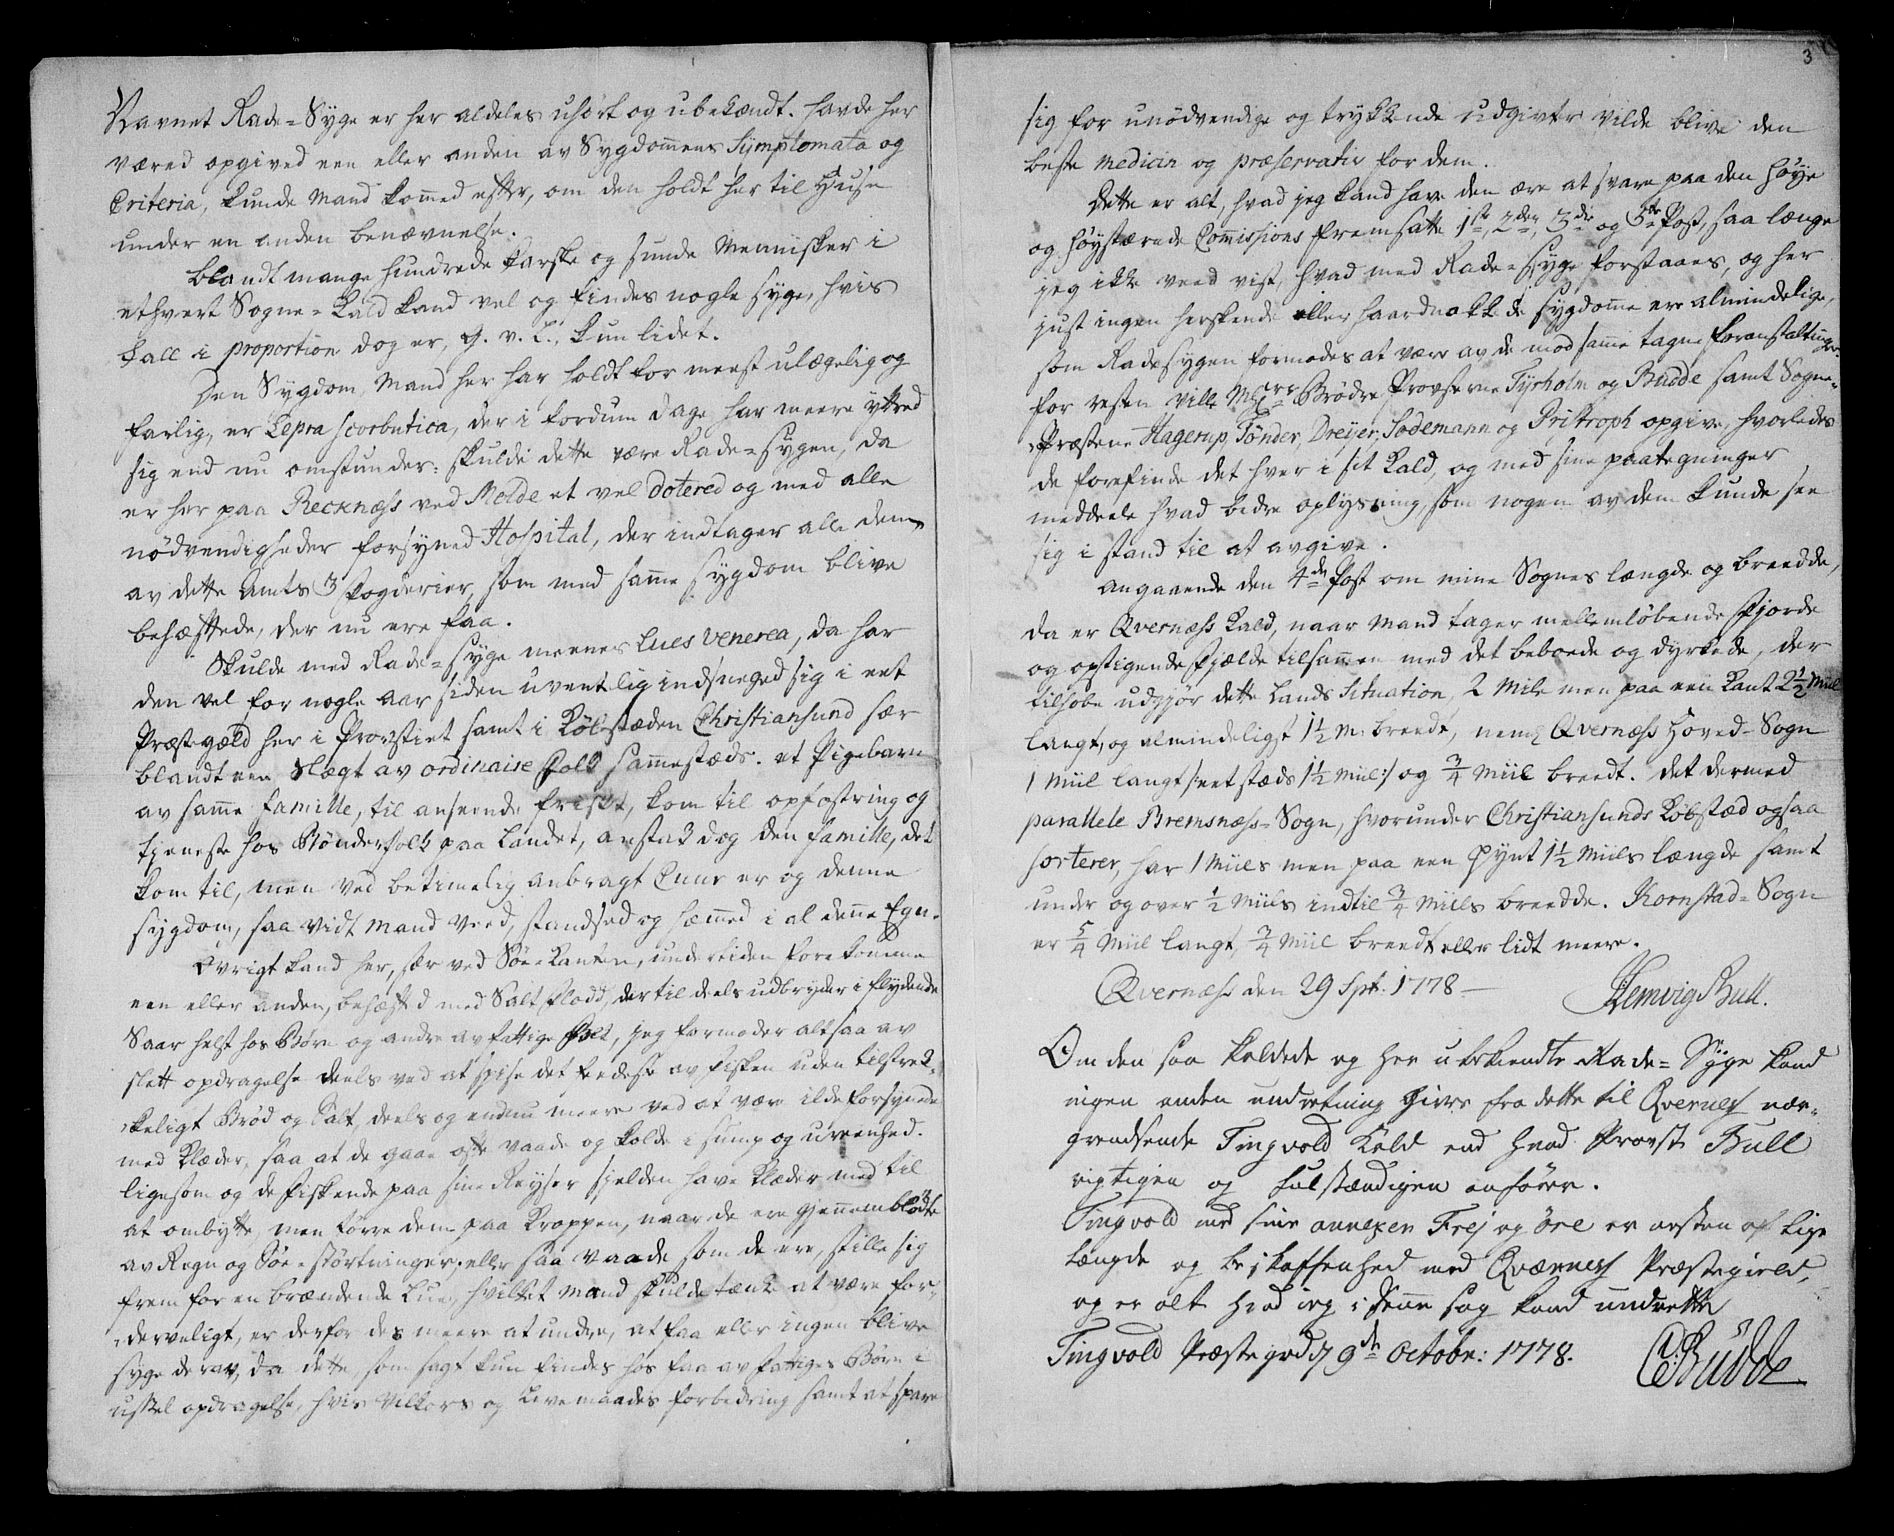 Navnet Rade-Syge er her aldeles uhørt og ubekændt. Havde her
været opgived een eller anden av Sygdommens Symptomata og
Criteria, kunde Mand kommed efter, om den holdt her til Huse
under en anden benævnelse.
Blandt mange hundrede karske og sunde Mennisker i
ethvert Sogne-Kald kand vel og findes nogle syge, hvis
tall i proportion dog er, G. v. L., kun lidet.
Den Sygdom, Mand her har holdt for meest ulægelig og
farlig, er Lepra scorbutica, der i fordum Dage har meere yttred
sig end nu omstunder: skulde dette være Rade-sygen, da
er her paa Recknæss ved Molde et vel doteret og med alle
nödvendigheder forsyned Hospital, der indtager alle dem
av dette Amts 3 fogderier, som med samme sygdom blive
behæftede, der nu ere faa.
Skulde med Rade-syge meenes Lues Venerea, da har
den vel for nogle aar siden uventelig indsneged sig i eet
Præstegæld her i Provstiet samt i Købstæden Christiansund sær
blandt een Slægt av ordinaire Folk sammestæds. et Pigebarn
av samme familie, til anseende frisk, kom til opfostring og
tjeneste hos Bønderfolk paa Landet, anstak dog den familie, det
kom til, men ved betimelig anbragt Cuur er og denne
sygdom, saa vidt Mand veed, standsed og hæmmed i al denne Egn.
Øvrigt kand her, sær ved Søe-Kanten, undertiden forekomme
een eller anden, behæfted med Salt-flodd, der til deels udbryder i flydende
Saar helst hos Børn og andre av fattige folk, jeg formoder altsaa av
slett opdragelse deels ved at spise det fedeste av fisken uden tilstræk-
keligt Brød og Salt, deels og endnu meere ved at være ilde forsynede
med Klæder, saa at de gaae ofte vaade og kolde i sump og ureenhed.
ligesom og de fiskende paa sine Reyser sielden have klæder med til
at ombytte, men tørre dem paa Kroppen, naar de ere gjennemblødte
av Regn og Søe-störtninger, eller saa vaade, som de ere, stille sig
frem for en brændende Lue, hvilket Mand skulde tænke at være for-
derveligt, er derfor des meere at undre, at faa eller ingen blive
syge derav, da dette som sagt kun findes hos faa av fattiges Børn i
ussel opdragelse, hvis Vilkors og Levemaades forbedring samt at spare
3
sig for unödvendige og trykkende udgivter vilde blive den
beste Medicin og præservativ for dem.
Dette er alt, hvad jeg kand have den ære at svare paa den høye
og høystærede Commissions fremsatte 1ste, 2den, 3die og 5te Post, saa længe
jeg ikke veed vist, hvad med Rade-syge forstaaes, og her
just ingen herskende eller haardnakkede sygdomme ere almindelige,
som Radesygen formodes at være av de mod samme tagne foranstaltninger.
for resten ville Brödre Provsterne Tyrholm og Budde samt Sogne-
Præstene Hagerup, Tönder, Dreyer, Sodemann og Pristroph opgive, hvorledes
de forefinde det hver i sit Kald, og med sine paategninger
meddeele hvad bedre oplysning, som nogen av dem kunde see
sig i stand til at avgive.
angaaende den 4de Post om mine Sognes længde og breedde,
da er Qvernæss Kald, naar Mand tager mellemløbende Fjorde
og opstigende Fjælde tilsammen med det beboede og dyrkede, der
tilhobe udgjör dette Lands Situation, 2 Mile men paa een Kant 2½ Miil
langt, og almindeligst 1½ M. breedt, neml. Qvernæss Hoved-Sogn
1 Miil langt /: eet stæds 1½ Miil :/ og ¾ Miil breedt. det dermed
parallele Bremsnæss-Sogn, hvorunder Christiansunds Købstæd ogsaa
sorterer, har 1 Miils men paa een Pynt 1½ Miils længde samt
under og over ½ Miils indtil ¾ Miils breedde. Kornstad-Sogn
er 5/4 Miil langt, ¾ Miil breedt eller lidt meere.
Qvernæss den 29 Spt. 1778
Hemvig Bull.
Om den saa kaldede og her ubekiendte Rade-Syge kand
ingen anden undretning gives fra dette til Qvernes næst-
grendsende Tingvold Kald end hvad Provst Bull
rigtigen og fulstændigen anfører.
Tingvold med sine annexer Frej og Øre er næsten af lige
længde og beskaffenhed med Qværnes Præstegield,
og er alt hvad jeg i denne sag kand undrette
Tingvold Præstegrd d 9de Octobr: 1778.
Budde